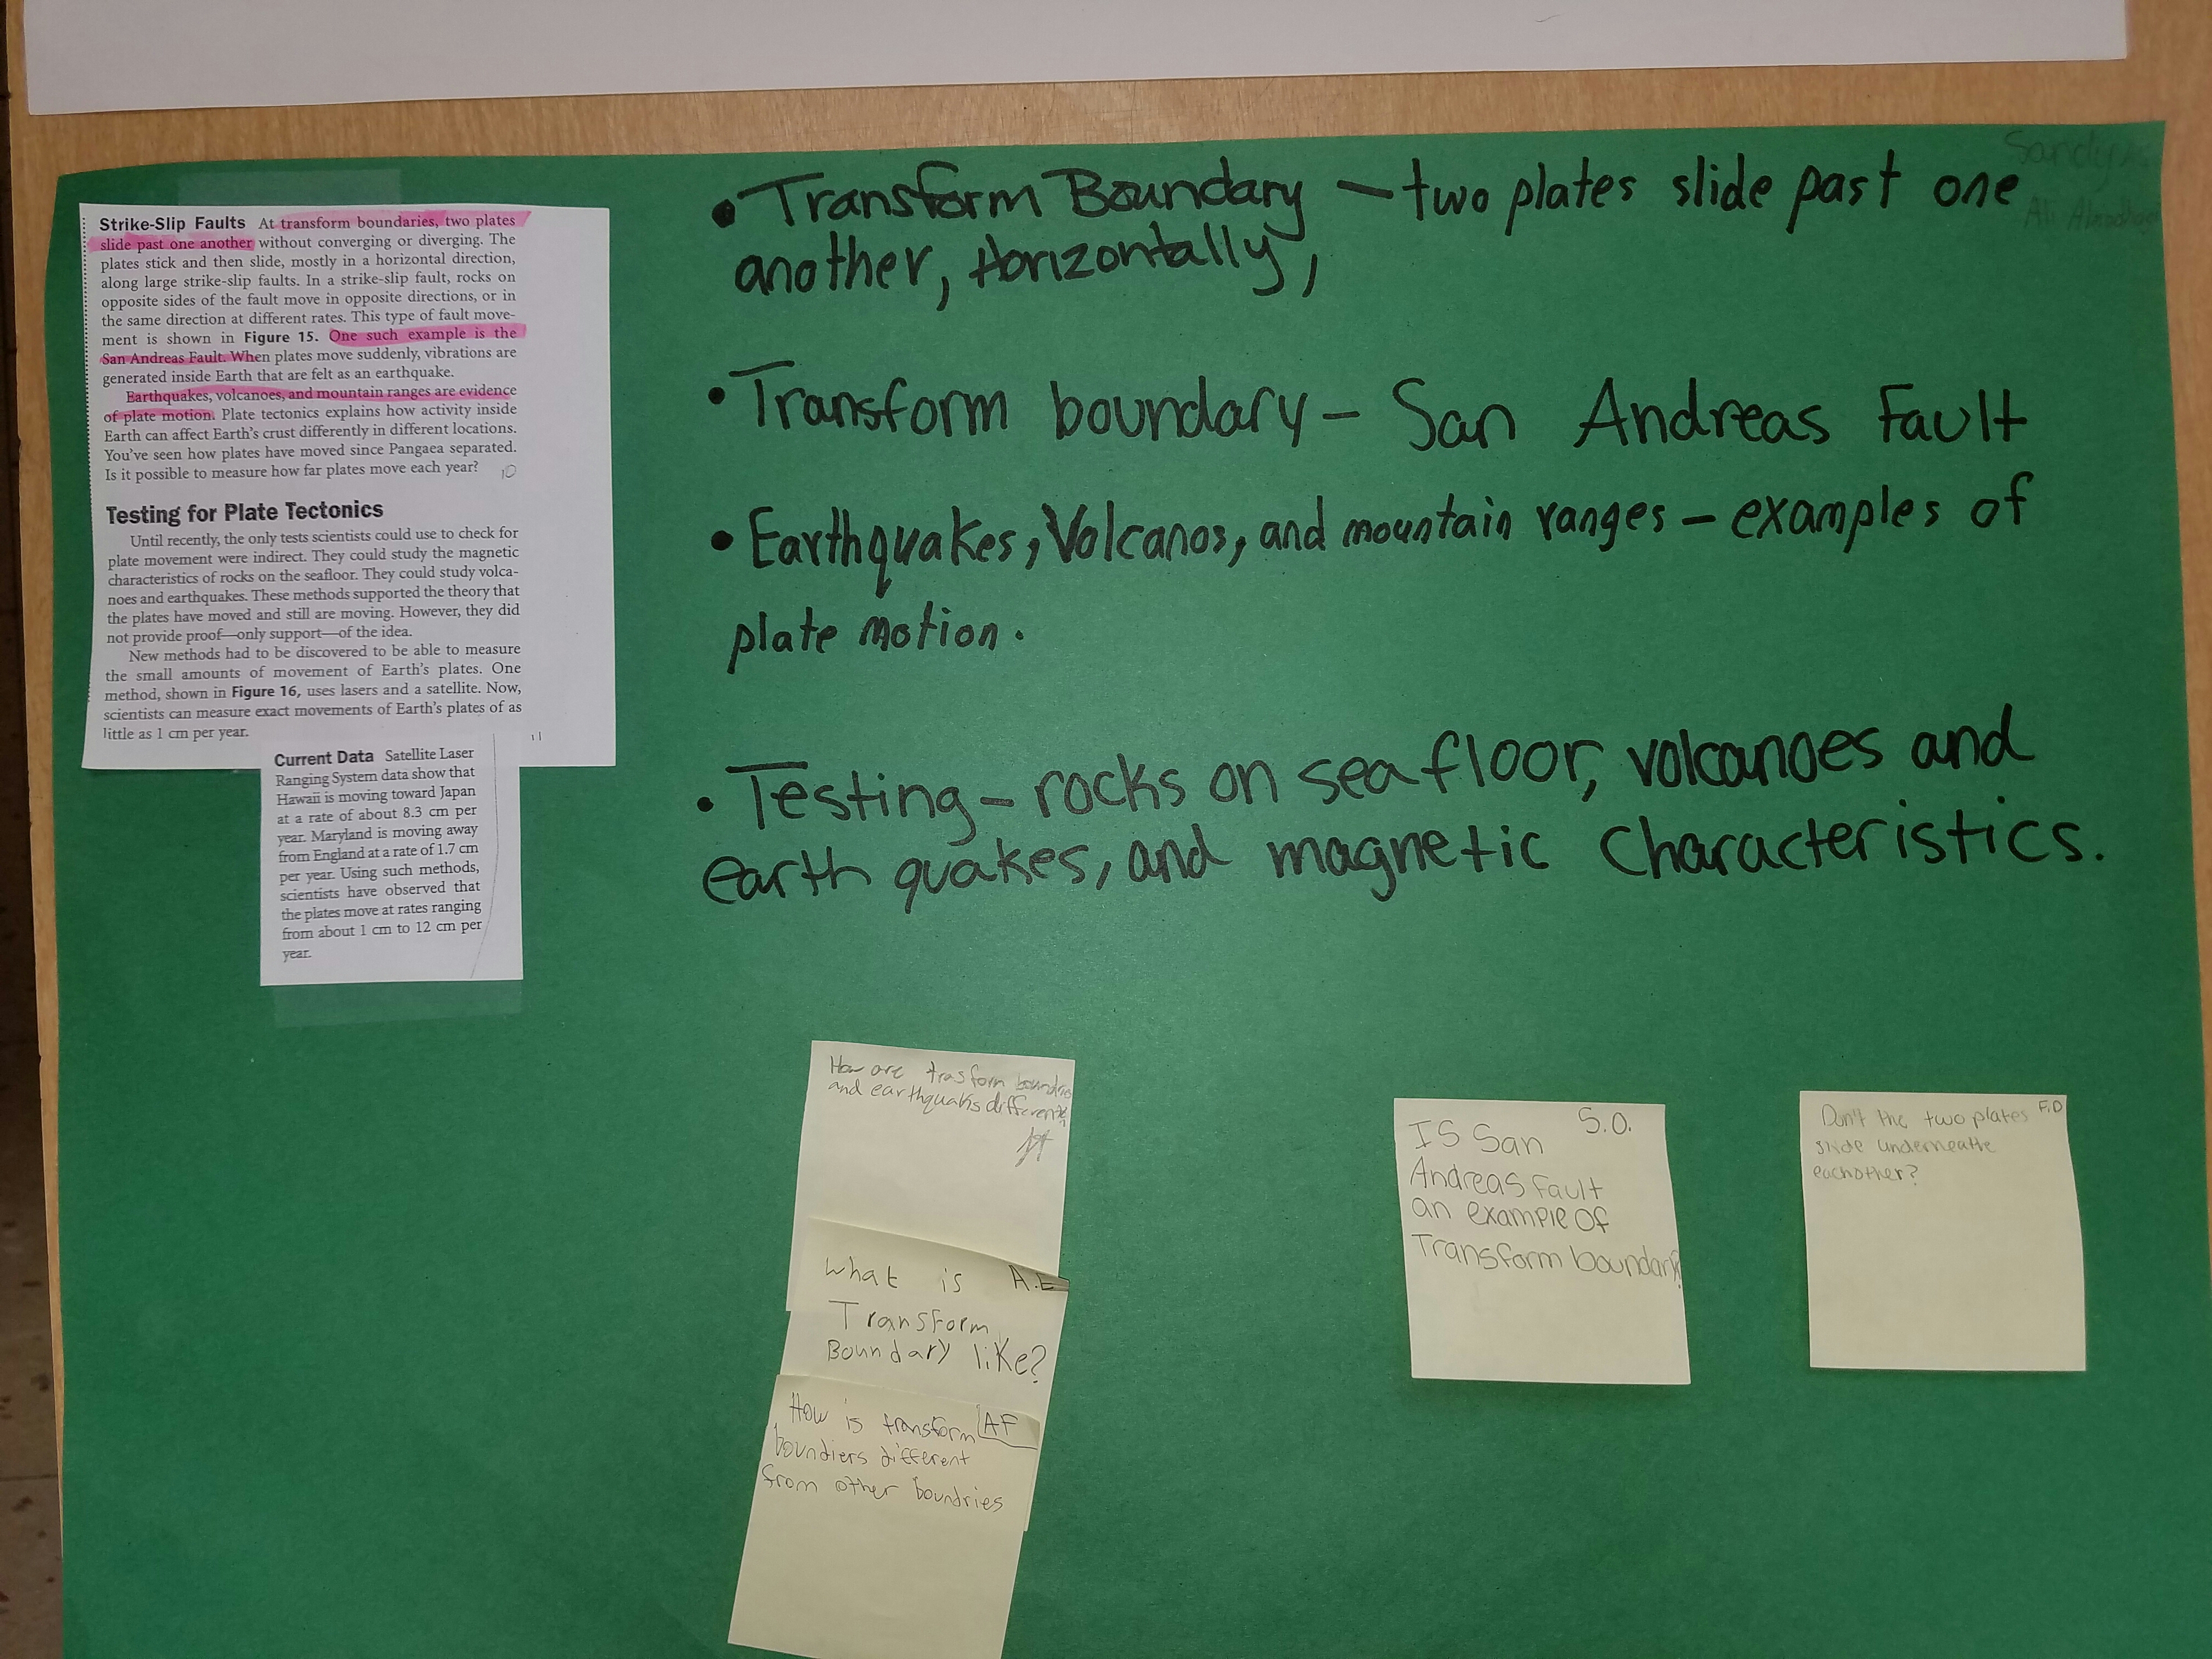 Strike-Slip Faults At transform boundaries, two plates
slide past one another without converging or diverging. The
plates stick and then slide, mostly in a horizontal direction,
along large strike-slip faults. In a strike-slip fault, rocks on
opposite sides of the fault move in opposite directions, or in
the same direction at different rates. This type of fault move-
ment is shown in Figure 15. One such example is the
San Andreas Fault. When plates move suddenly, vibrations are
generated inside Earth that are felt as an earthquake.
Earthquakes, volcanoes, and mountain ranges are evidence
of plate motion. Plate tectonics explains how activity inside
Earth can affect Earth's crust differently in different locations.
You've seen how plates have moved since Pangaea separated.
Is it possible to measure how far plates move each year? 10
Testing for Plate Tectonics
Until recently, the only tests scientists could use to check for
plate movement were indirect. They could study the magnetic
characteristics of rocks on the seafloor. They could study volca-
noes and earthquakes. These methods supported the theory that
the plates have moved and still are moving. However, they did
not provide proof—only support—of the idea.
New methods had to be discovered to be able to measure
the small amounts of movement of Earth's plates. One
method, shown in Figure 16, uses lasers and a satellite. Now,
scientists can measure exact movements of Earth's plates of as
little as 1 cm per year.
11
Current Data Satellite Laser
Ranging System data show that
Hawaii is moving toward Japan
at a rate of about 8.3 cm per
year. Maryland is moving away
from England at a rate of 1.7 cm
per year. Using such methods,
scientists have observed that
the plates move at rates ranging
from about 1 cm to 12 cm per
year.
Sandy
Ali
• Transform Boundary – two plates slide past one
another, Horizontally,
• Transform boundary – San Andreas Fault
• Earthquakes, Volcanos, and mountain ranges – examples of
plate motion.
• Testing – rocks on sea floor, volcanoes and
earth quakes, and magnetic characteristics.
How are trasform boundries
and earthquaks different?
What is A.E
Transform
Boundary like?
How is transform AF
boundiers different
from other boundries
S.O.
IS San
Andreas Fault
an example Of
Transform boundary?
Don't the two plates F.D
slide underneathe
eachother?